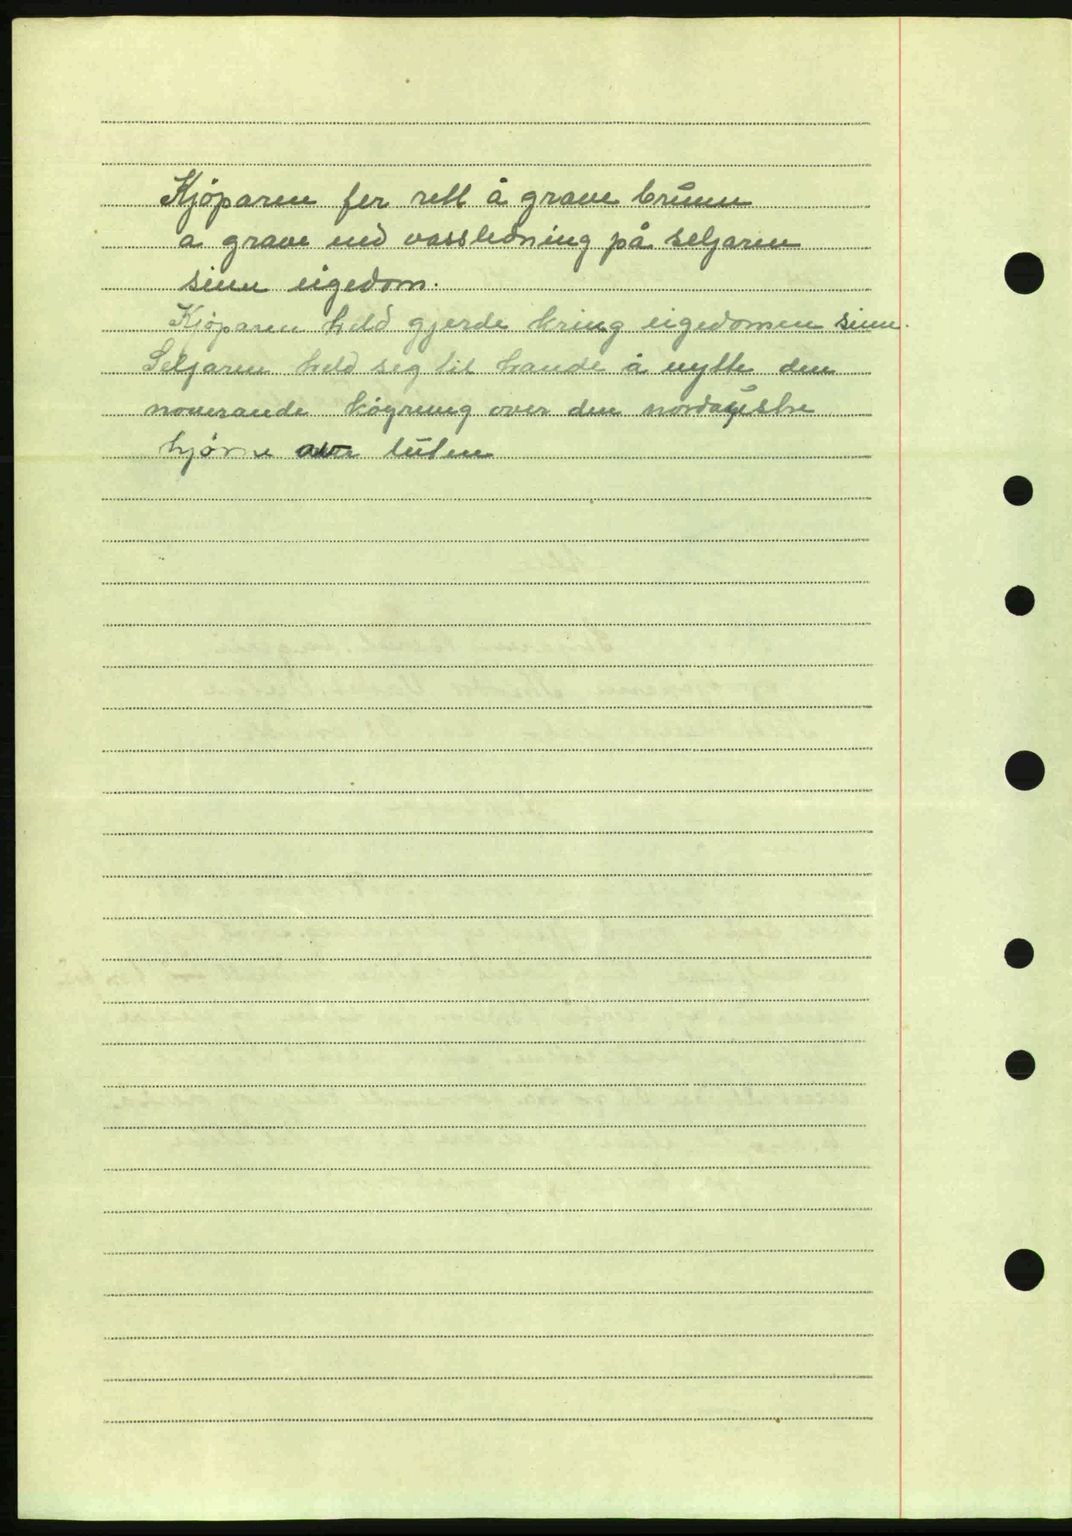 Kjøparen fær rett å grave brunn
a grave ned vassledning på seljaren
sinn eigedom.
Kjøparen held gjerde kring eigedomen sinn.
Seljaren held seg til hande å nytte den
noverande køyrung over den nordaustre
hjørne av tuten